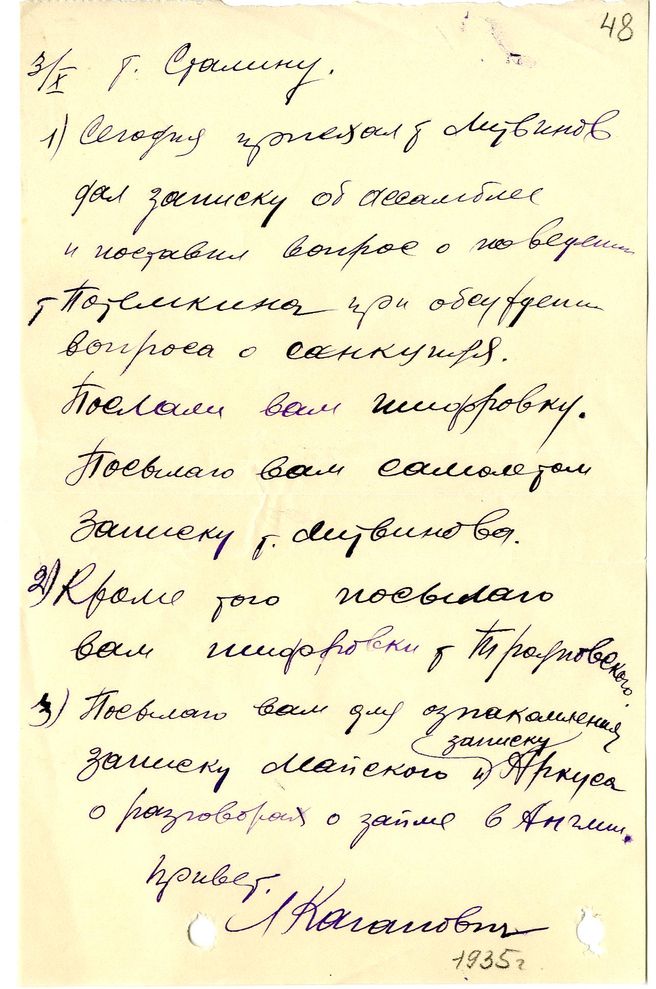 48
3/X т. Сталину.
1) Сегодня приехал т Литвинов
дал записку об ассамблее
и поставил вопрос о поведении
т Потемкина при обсуждении
вопроса о санкциях.
Послали вам шифровку.
Посылаю вам самолетом
Записку т. Литвинова.
2) Кроме того посылаю
вам шифровки т Трояновского.
3) Посылаю вам для ознакомления
записку
записку Майского и Аркуса
о разговорах о займе в Англии.
Привет.
Л Каганович
1935г